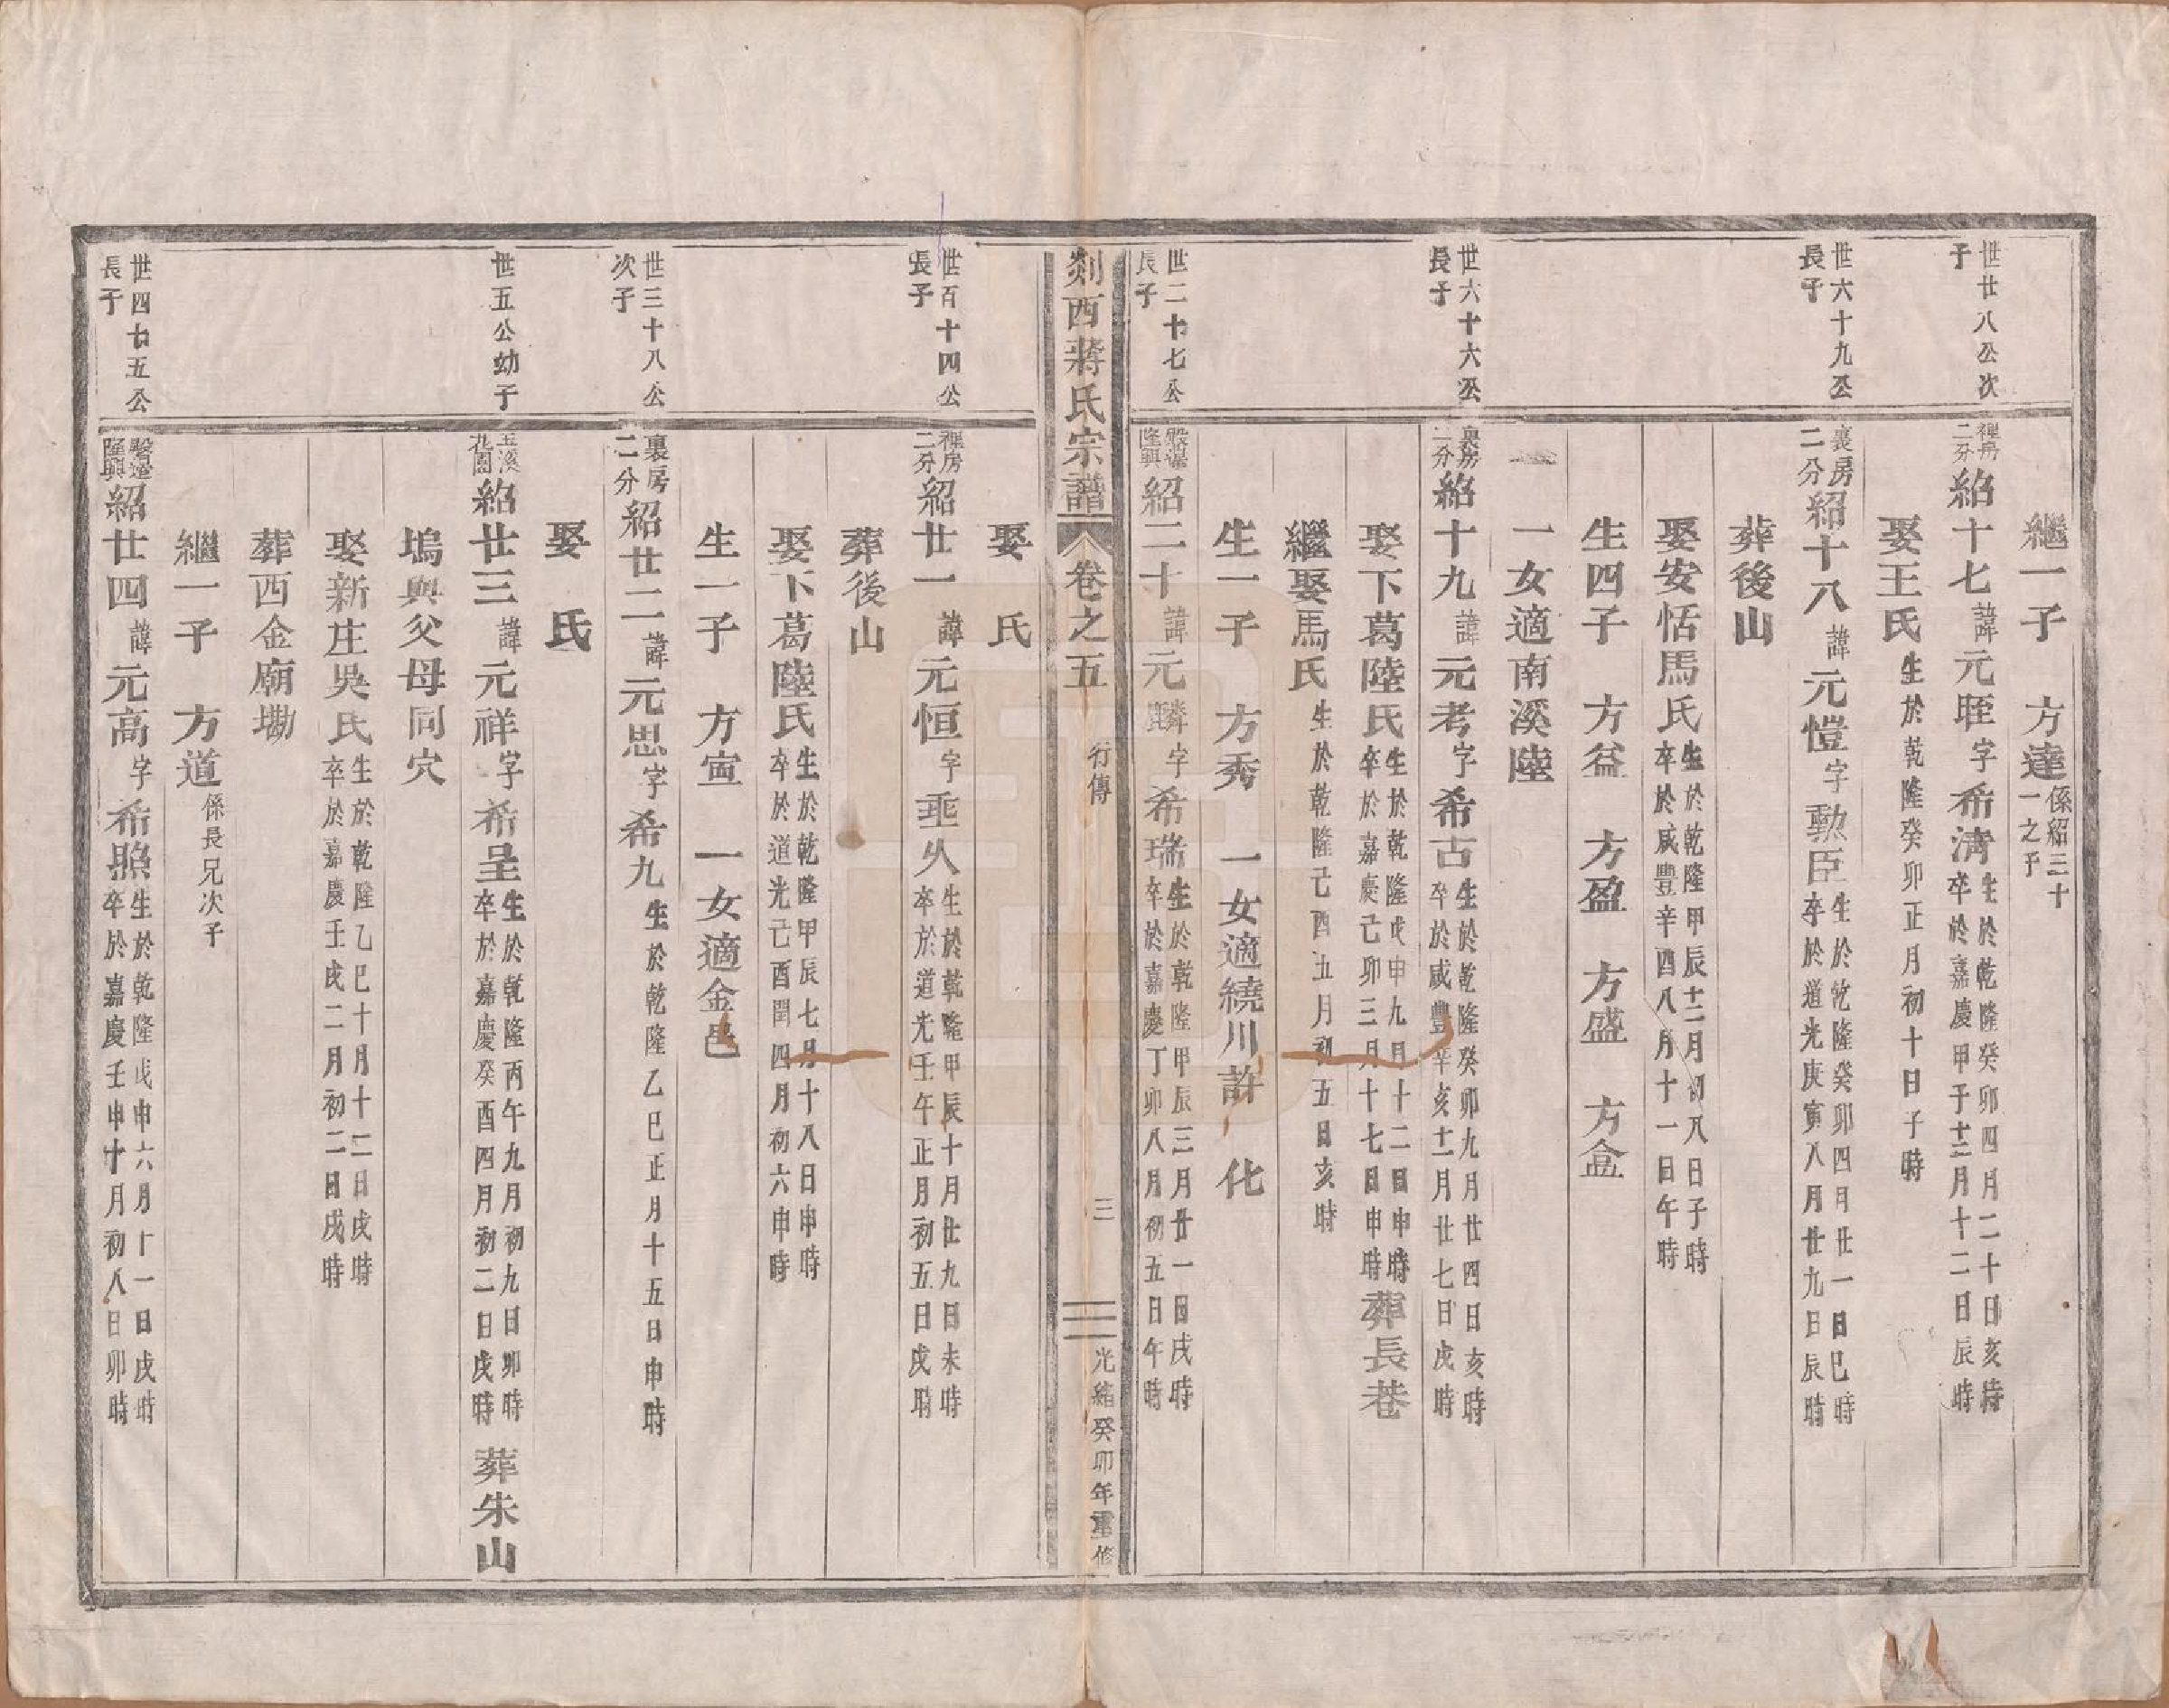 繼一子　方達係紹三十一之子
世廿八公次子
裡房二分紹十七諱元𦙫字希淸生於乾隆癸卯四月二十日亥時卒於嘉慶甲子十二月十二日辰時
娶王氏生於乾隆癸卯正月初十日子時
世六十九公長子
裏房二分紹十八諱元愷字勳臣生於乾隆癸卯四月廿一日巳時卒於道光庚寅八月廿九日辰時
葬後山
娶安恬馬氏生於乾隆甲辰十二月初八日子時卒於咸豐辛酉八月十一日午時
生四子　方益　方盈　方盛　方盒
一女適南溪陸
世六十六公長子
裏房二分紹十九諱元考字希古生於乾隆癸卯九月廿四日亥時卒於咸豐辛亥十二月廿七日戌時
娶下葛陸氏生於乾隆戊申九月十二日申時卒於嘉慶己卯三月十七日申時葬長巷
繼娶馬氏生於乾隆己酉五月初五日亥時
生一子　方秀　一女適繞川許　化
世二十七公長子
盤湯隆興紹二十諱元麟字希瑞生於乾隆甲辰三月廿一日戌時卒於嘉慶丁卯八月初五日午時
剡西蔣氏宗譜　卷之五　行傳　三　光緒癸卯年重修
娶　氏
世百十四公長子
裡房二分紹廿一諱元恒字垂久生於乾隆甲辰十月廿九日未時卒於道光壬午正月初五日戌時
葬後山
娶下葛陸氏生於乾隆甲辰七月十八日申時卒於道光己酉閏四月初六申時
生一子　方宣　一女適金邑
世三十八公次子
裏房二分紹廿二諱元思字希九生於乾隆乙巳正月十五日申時
娶　氏
世五公幼子
玉溪花園紹廿三諱元祥字希呈生於乾隆丙午九月初九日卯時卒於嘉慶癸酉四月初二日戌時　葬朱山
塢與父母同穴
娶新庄吳氏生於乾隆乙巳十月十二日戌時卒於嘉慶壬戌二月初二日戌時
葬西金廟墈
繼一子　方道係長兄次子
世四十五公長子
盤邊隆興紹廿四諱元高字希照生於乾隆戊申六月十一日戌時卒於嘉慶壬申十月初八日卯時